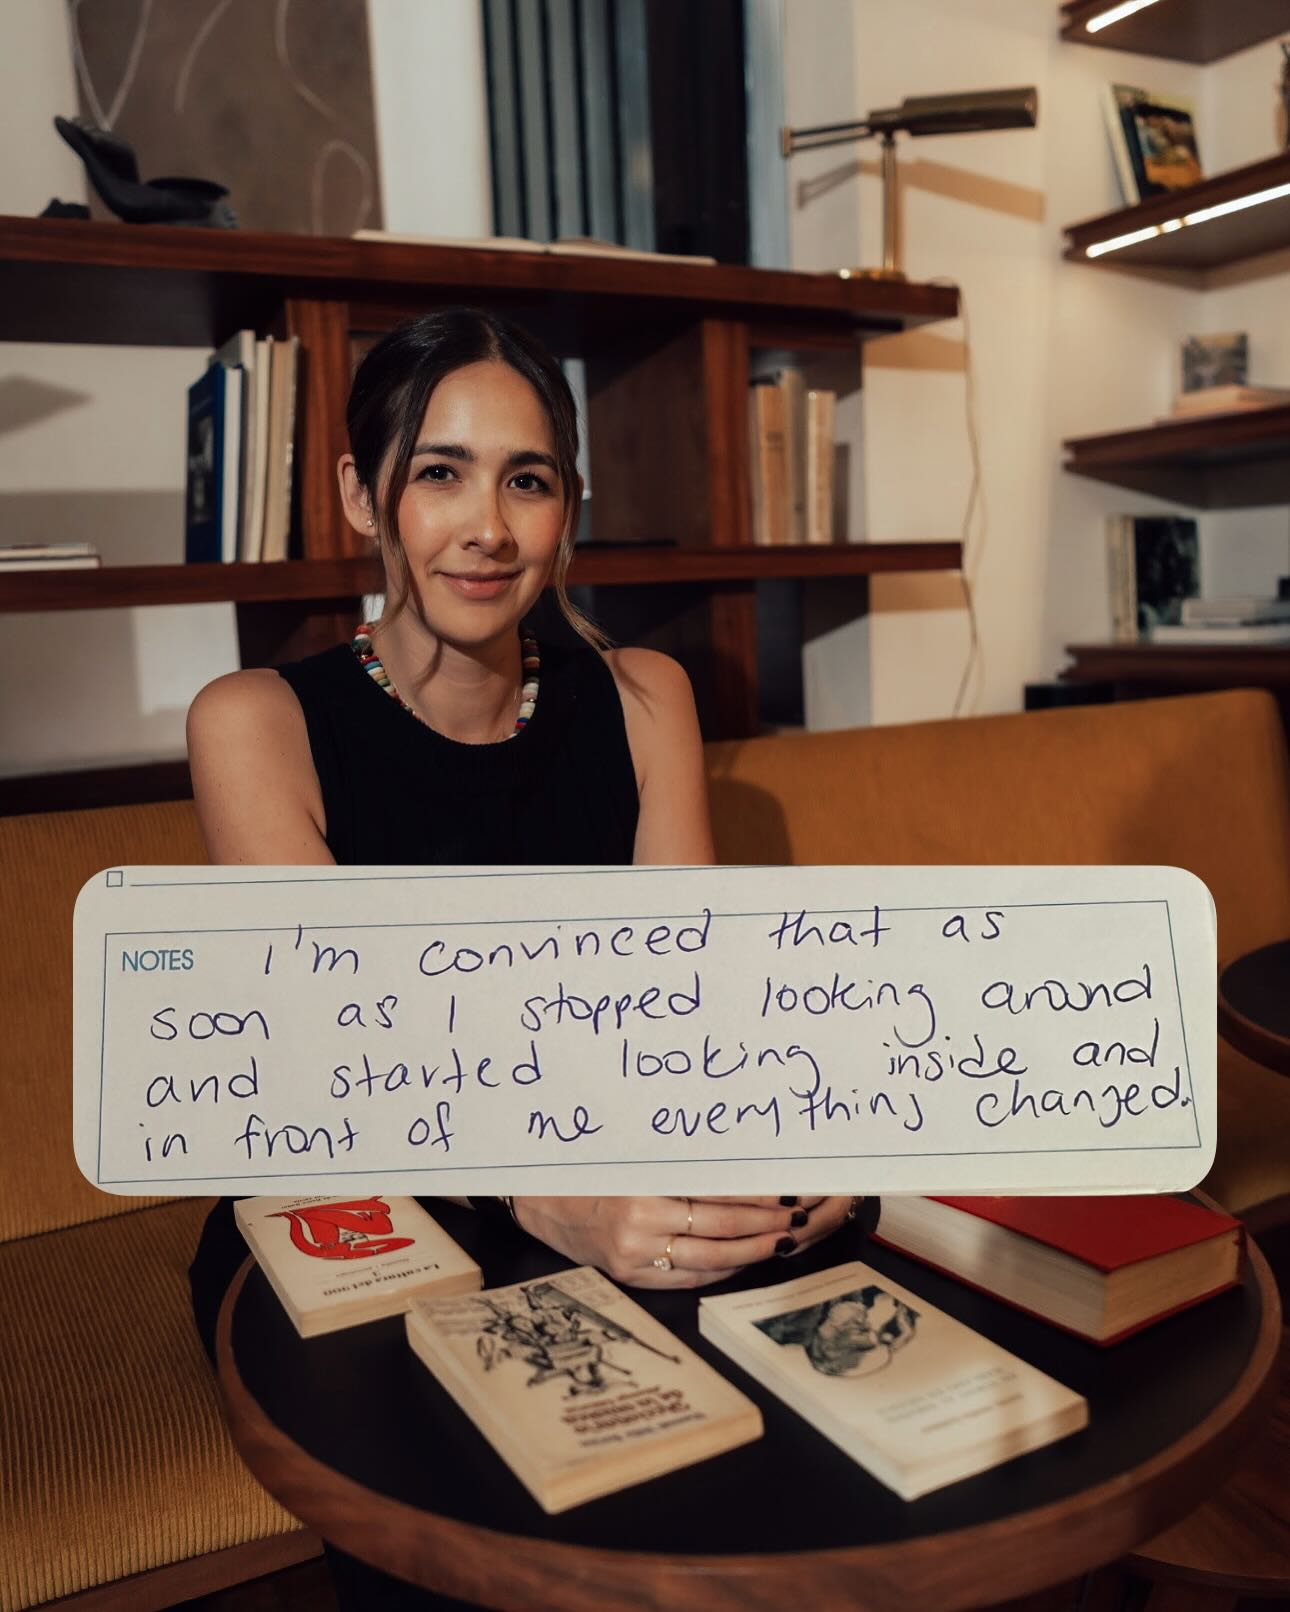 NOTES I'm convinced that as
soon as I stopped looking around
and started looking inside and
in front of me everything changed.
La cultura del 900
3